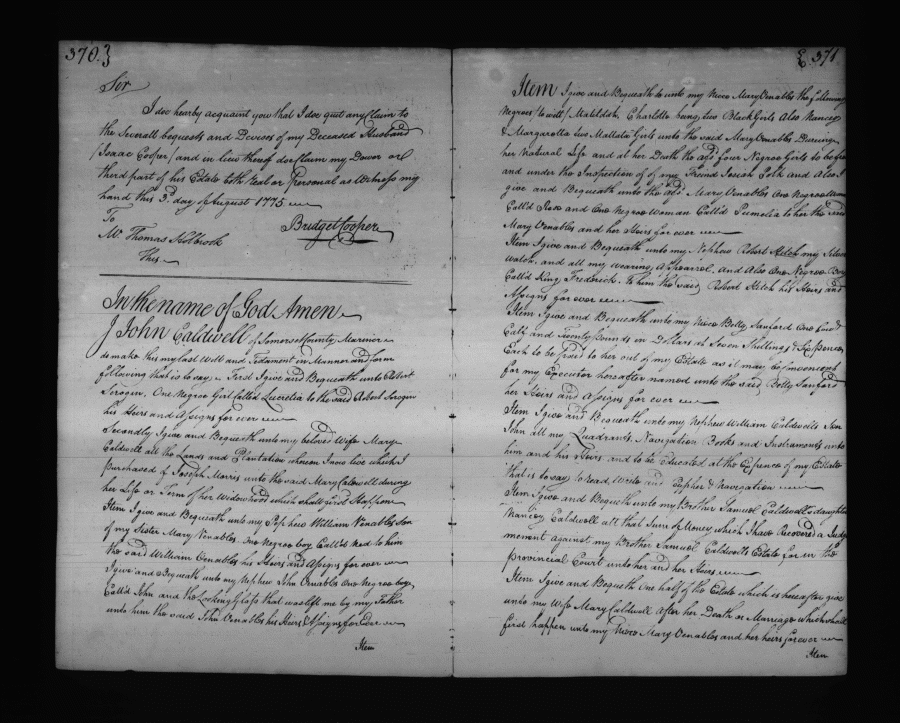 370.}
Sir
I doe hearby acquaint you that I doe quit any Claim to
the Severall bequests and Devises of my Deceased Husband
/Isaac Cooper/ and in lieu thereof doe Claim my Dower or
third part of his Estate both Real or Personal as Witness my
hand this 3d. day of August 1775
To Bridget Cooper
Mr. Thomas Holbrook
This
In the name of God Amen
I John Caldwell of Somerset County Mariner
do make this my last Will and Testament in Manner and form
following that is to say. First I give and Bequeath unto Robert
Scrogin, One Negroe Girl Called Lucretia to the said Robert Scrogin
his Heirs and Assigns for ever
Secondly I give and Bequeath unto my beloved Wife Mary
Caldwell all the Lands and Plantation whereon I now live which I
Purchased of Joseph Morris unto the said Mary Calwell during
her Life or Term of her Widowhood which shall first Happen
Item I give and Bequeath unto my Nephew William Venables Son
of my Sister Mary Venables One Negroe boy Call'd Ned to him
the said William Venables his Heirs and Assigns for ever
I give and Bequeath unto my Nephew John Venables One Negroe boy
Call'd John and the Looking Glass that was left me by my Father
unto him the said John Venables his Heirs & Assigns for Ever
Item
{371
Item I give and Bequeath to unto my Niece Mary Venables the following
Negroes to witt / Matildah, Charlotte being two Black Girls Also Nancy
& Margaretta two Mallatto Girls unto the said Mary Venables During
her Natural Life and at her Death the afd. four Negroe Girls to be free
and under the Inspection of of my Freind Josiah Polk and Also I
give and Bequeath unto the afd. Mary Venables One Negroe
Call'd Rose and One Negroe Woman Call'd Pamelia to her the said
Mary Venables and her Heirs for ever
Item I give and Bequeath unto my Nephew Robert Hitch my Silver
Watch, and all my wearing Apparrel, And Also One Negroe Boy
Call'd King Frederick. to him the said Robert Hitch his Heirs and
Assigns for ever
Item I give and Bequeath unto my Niece Betty Sanford One Cow &
Calf and Twenty Pounds in Dollars at Seven Shillings & Sixpence
Each to be paid to her out of my Estate as it may be convenient
for my Executor hereafter named unto the said Betty Sanford
her Heirs and Assigns for ever
Item I give and Bequeath unto my Nephew William Caldwells Son
John all my Quadrants Navigation Books and Instruments unto
him and his Heirs. and to be Educated at the Expence of my Estate
that is to say to read, Write and Cypher & Navigation
Item I give and Bequeath unto my Brother Samuel Caldwell's daughter
Nancy Caldwell all that Sum of Money which I have Recovered a Judg
mement against my Brother Samuel Caldwells Estate for in the
Provincial Court unto her and her Heirs
Item I give and Bequeth One half of the Estate which is hereafter give
unto my Wife Mary Caldwell after her Death or Marriage which shall
first happen unto my Niece Mary Venables and her heirs for ever
Item